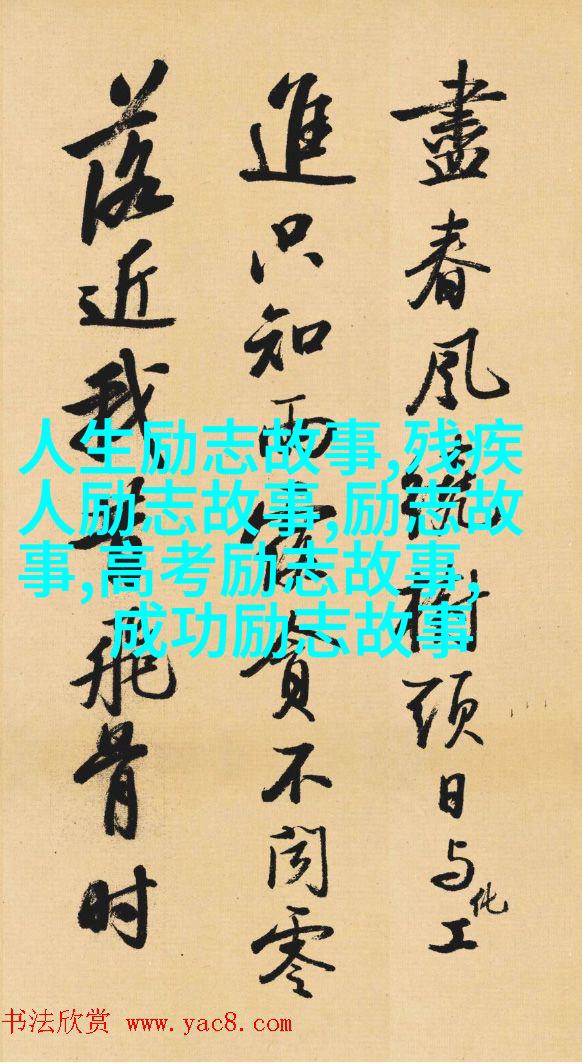 盡春風繞樹頭日与化工
進只知雨露貪不聞零
落近我飛骨时
人生励志故事,残疾
人励志故事,励志故
事,高考励志故事,
成功励志故事
书法欣赏 www.yac8.com